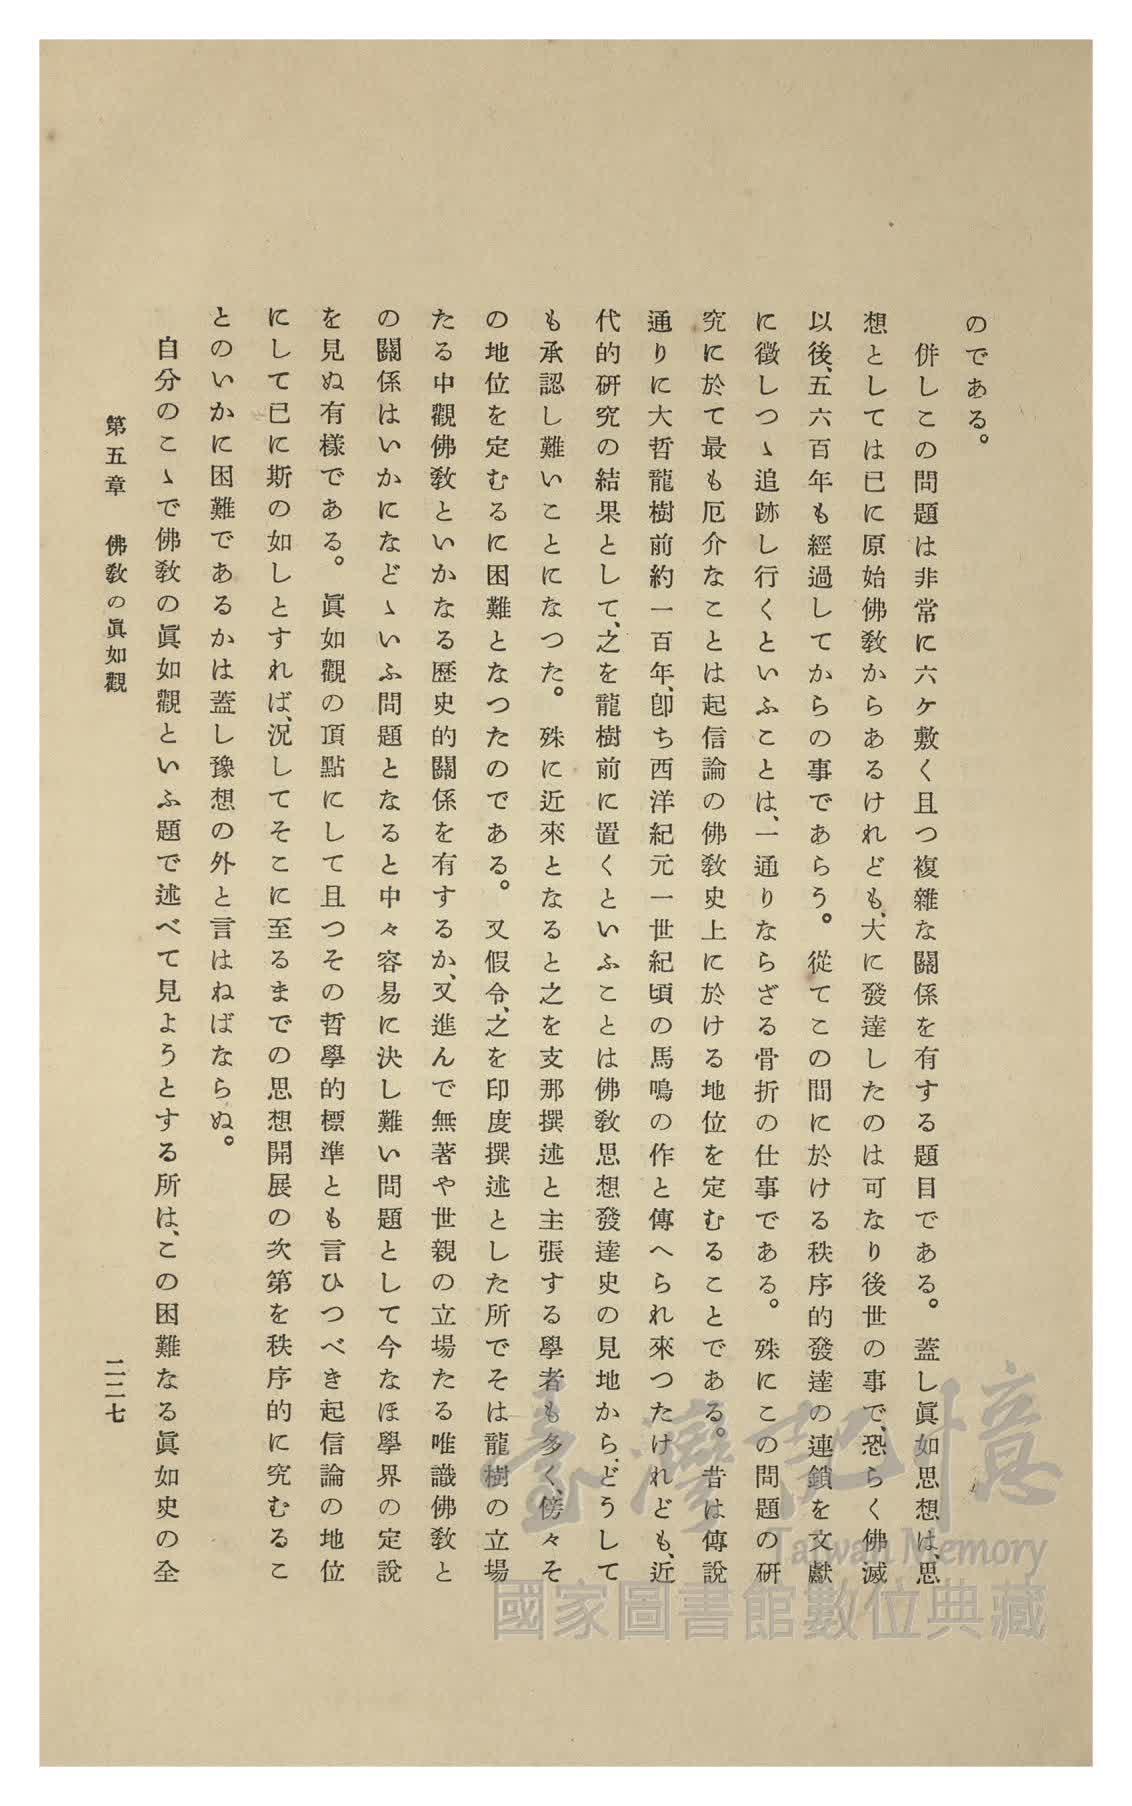 のである。
併しこの問題は非常に六ケ敷く且つ複雜な關係を有する題目である。蓋し眞如思想は、思
想としては已に原始佛敎からあるけれども、大に發達したのは可なり後世の事で、恐らく佛滅
以後、五六百年も經過してからの事であらう。從てこの間に於ける秩序的發達の連鎖を文獻
に徵しつゝ追跡し行くといふことは、一通りならざる骨折の仕事である。殊にこの問題の硏
究に於て最も厄介なことは起信論の佛敎史上に於ける地位を定むることである。昔は傳說
通りに大哲龍樹前約一百年、卽ち西洋紀元一世紀頃の馬鳴の作と傳へられ來つたけれども、近
代的硏究の結果として、之を龍樹前に置くといふことは佛敎思想發達史の見地から、どうして
も承認し難いことになつた。殊に近來となると之を支那撰述と主張する學者も多く、傍々そ
の地位を定むるに困難となつたのである。又假令、之を印度撰述とした所でそは龍樹の立場
たる中觀佛敎といかなる歷史的關係を有するか、又進んで無著や世親の立場たる唯識佛敎と
の關係はいかになどゝいふ問題となると中々容易に決し難い問題として今なほ學界の定說
を見ぬ有樣である。眞如觀の頂點にして且つその哲學的標準とも言ひつべき起信論の地位
にして已に斯の如しとすれば、況してそこに至るまでの思想開展の次第を秩序的に究むるこ
とのいかに困難であるかは蓋し豫想の外と言はねばならぬ。
自分のこゝで佛敎の眞如觀といふ題で述べて見ようとする所は、この困難なる眞如史の全
第五章 佛敎の眞如觀 二二七
臺灣記憶
Taiwan Memory
國家圖書館數位典藏